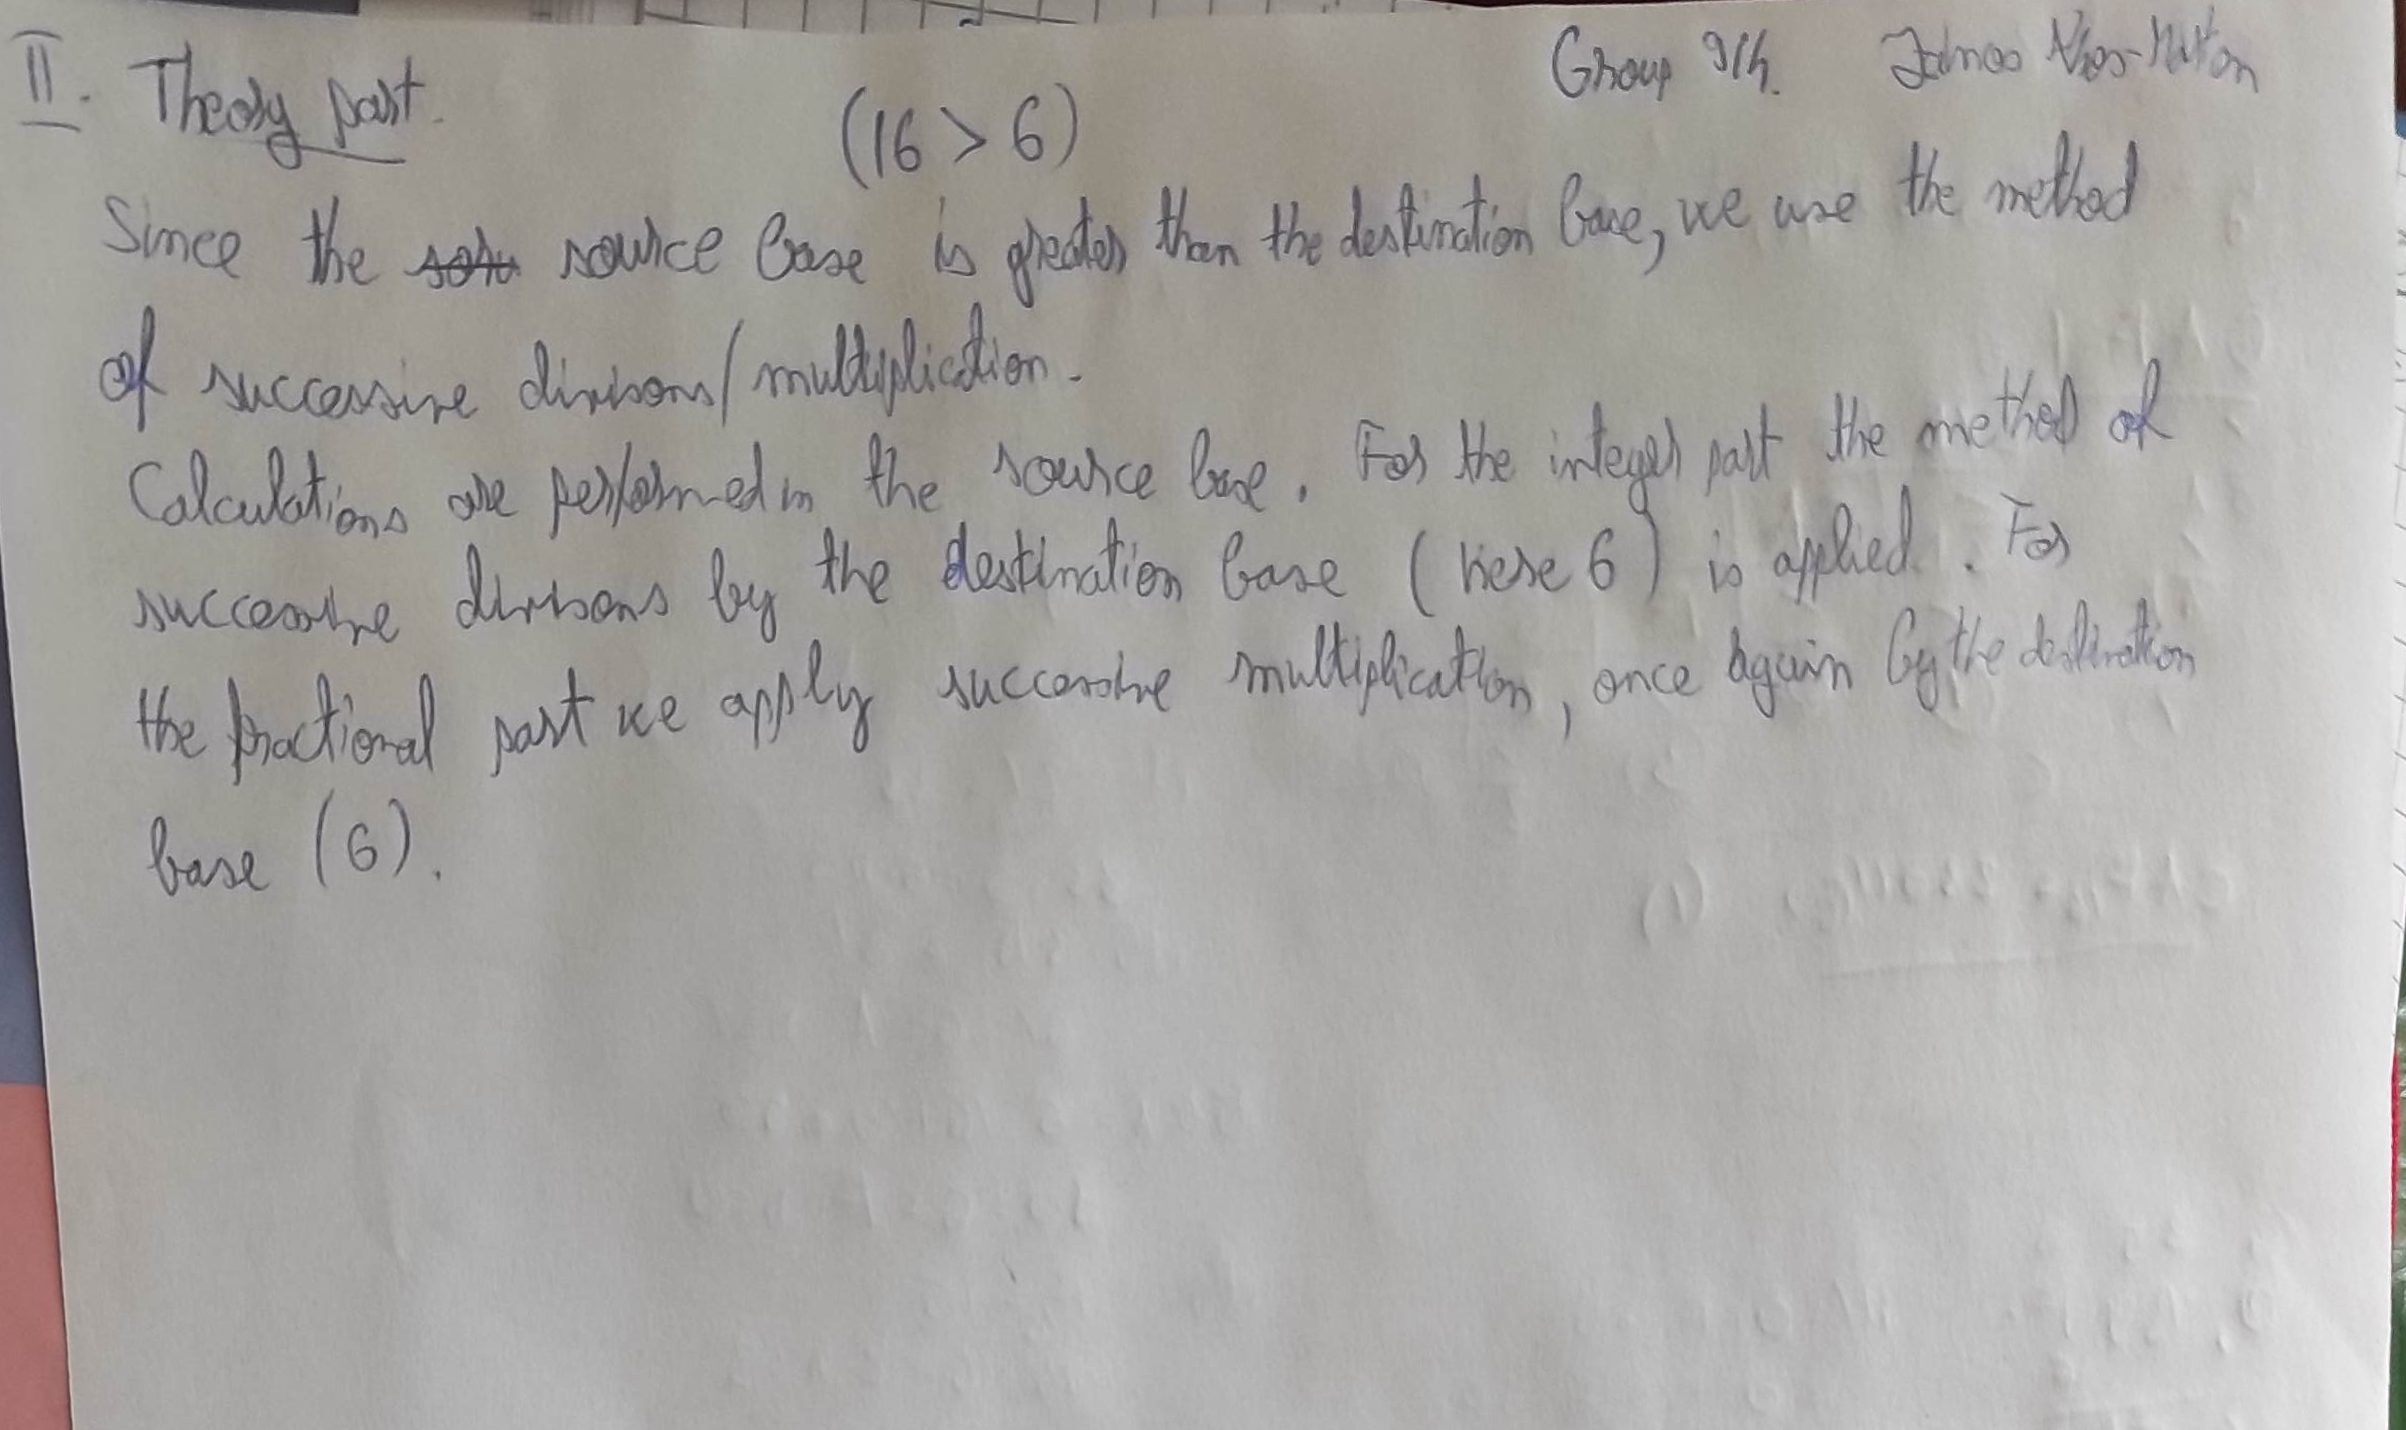 II. Theory part.
Group 914.
(16 > 6)
Since the source base is greater than the destination base, we use the method
of successive divisons/multiplication.
Calculations are performed in the source base. For the integer part the method of
successive divisons by the destination base (here 6) is applied. For
the fractional part we apply successive multiplication, once again by the destination
base (6).